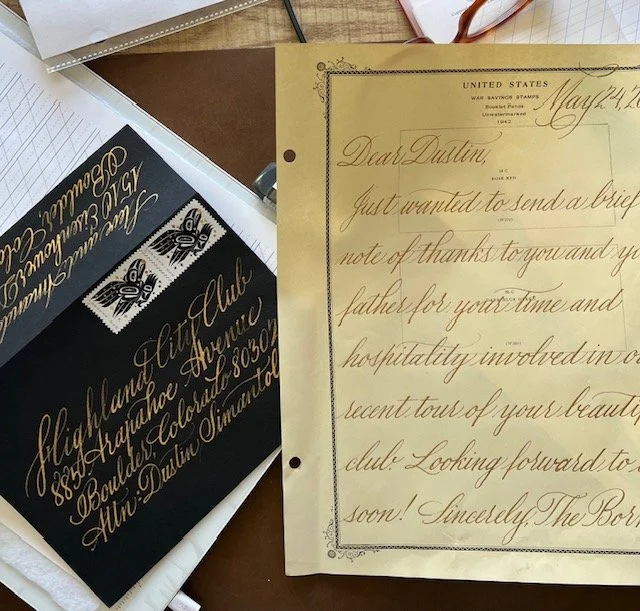 Steve and Amanda
1510 Eisenhower D
Boulder, Colo
Highland City Club
885 Arapahoe Avenue
Boulder, Colorado 80302
Attn: Dustin Simantob
UNITED STATES
WAR SAVINGS STAMPS
Booklet Panes
Unwatermarked
1942
May 24, 20
Dear Dustin,
Just wanted to send a brief
note of thanks to you and yo
father for your time and
hospitality involved in ou
recent tour of your beautif
club. Looking forward to s
soon! Sincerely, The Bor